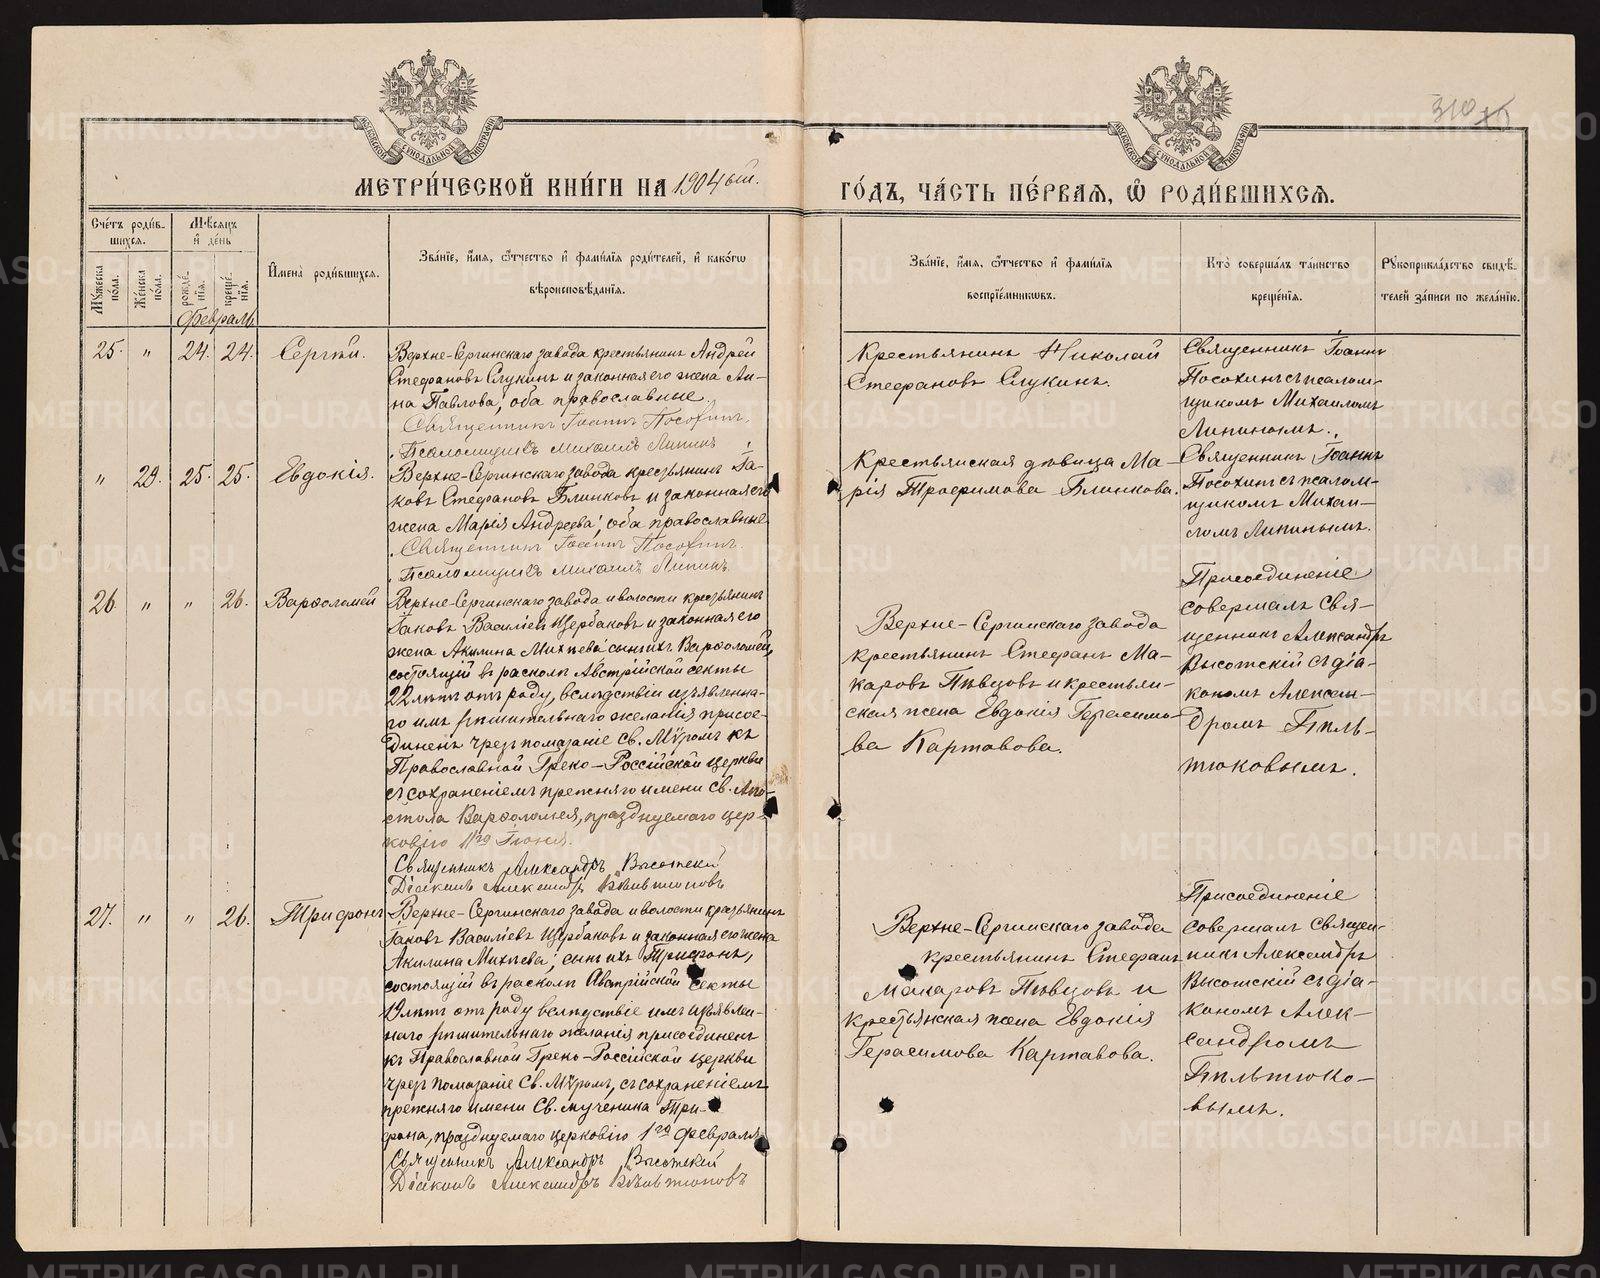 МЕТРИ́ЧЕСКОЙ КНИ́ГИ НА 1904 ый.
ГО́ДЪ, ЧА́СТЬ ПЕ́РВАЯ, Ѡ҆ РОДИ́ВШИХСЯ.
310
Сче́тъ роди́в-
шихся.
Мꙋжеска по́ла.
Же́нска по́ла.
Мѣ́сяцъ
и҆ де́нь
рожде́-нїя.
креще́-нїя.
Февраль
И҆мена̀ роди́вшихся.
Зва́нїе, и҆́мя, ѻ҆́тчество и҆ фами́лїя роди́телей, и҆ како́гѡ
вѣроисповѣ́данїя.
Зва́нїе, и҆́мя, ѻ҆́тчество и҆ фами́лїя
воспрїе́мникѡвъ.
Кто̀ соверша́лъ та́инство
креще́нїя.
Рꙋкоприкла́дство свидѣ́-
телей за́писи по жела́нїю.
25. " 24. 24. Сергѣй.
Верхне-Сергинскаго завода крестьянинъ Андрей
Стефановъ Слукинъ и законная его жена Ан-
на Павлова, оба православные.
Священникъ Іоаннъ Посохинъ.
Псаломщикъ Михаилъ Липинъ
Крестьянинъ Николай
Стефановъ Слукинъ.
Священникъ Іоаннъ
Посохинъ съ псалом-
щикомъ Михаиломъ
Липинымъ.
" 29. 25. 25. Евдокія.
Верхне-Сергинскаго завода крестьянинъ Іа-
ковъ Стефановъ Блинковъ и законная его
жена Марія Андреева, оба православные.
Священникъ Іоаннъ Посохинъ.
Псаломщикъ Михаилъ Липинъ.
Крестьянская дѣвица Ма-
рія Трофимова Блинкова.
Священникъ Іоаннъ
Посохинъ съ псалом-
щикомъ Михаи-
ломъ Липинымъ.
26. " " 26. Варѳоломей
Верхне-Сергинскаго завода и волости крестьянинъ
Іаковъ Василіевъ Щербаковъ и законная его
жена Акилина Михѣева, сынъ ихъ Варѳоломей,
состоящій въ расколѣ Австрійской секты
22 лѣтъ отъ роду, вслѣдствіи изъявленна-
го имъ рѣшительнаго желанія присое-
диненъ чрезъ помазаніе Св. Мѵромъ къ
Православной Греко-Россійской церкви
съ сохраненіемъ прежняго имени Св. Апо-
стола Варѳоломея, празднуемаго цер-
ковію 11го Іюня.
Священникъ Александръ Высотскій
Діаконъ Александръ
Верхне-Сергинскаго завода
крестьянинъ Стефанъ Ма-
каровъ Пѣвцовъ и крестьян-
ская жена Евдокія Герасимо-
ва Картавова.
Присоединеніе
совершалъ Свя-
щенникъ Александръ
Высотскій съ діа-
кономъ Алексан-
дромъ Бѣль-
тюковымъ.
27. " " 26. Трифонъ
Верхне-Сергинскаго завода и волости крестьянинъ
Іаковъ Василіевъ Щербаковъ и законная его жена
Акилина Михѣева, сынъ ихъ Трифонъ,
состоящій въ расколѣ Австрійской секты
19 лѣтъ отъ роду вслѣдствіе имъ изъявлен-
наго рѣшительнаго желанія присоединенъ
къ Православной Греко-Россійской церкви
чрезъ помазаніе Св. Мѵромъ, съ сохраненіемъ
прежняго имени Св. мученика Три-
фона, празднуемаго церковію 1го февраля
Священникъ Александръ Высотскій
Діаконъ Александръ
Верхне-Сергинскаго завода
крестьянинъ Стефанъ
Макаровъ Пѣвцовъ и
крестьянская жена Евдокія
Герасимова Картавова.
Присоединеніе
совершалъ Священ-
никъ Александръ
Высотскій съ діа-
кономъ Алек-
сандромъ
Бѣльтюко-
вымъ.
METRIKI.GASO-URAL.RU